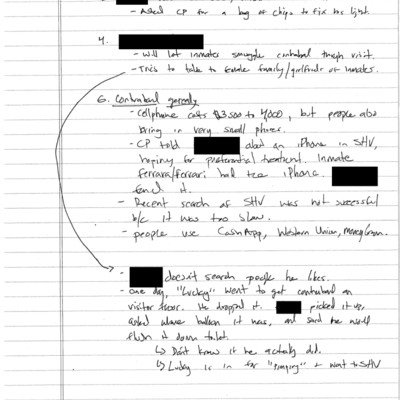 - Asked CP for a bag of chips to fix his light.
4.
- Will let inmates smuggle contraband through visit.
- Tries to talk to female family/girlfriends of inmates.
6. Contraband generally
- Cellphone costs $3500 to 4000, but people also
bring in very small phones.
- CP told about an iPhone in SHU,
hoping for preferential treatment. Inmate
Ferrara/Ferrari had the iPhone.
found it.
- Recent search of SHU was not successful
b/c it was too slow.
- people use CashApp, Western Union, MoneyGram.
- doesn't search people he likes.
- one day, "Lucky" went to get contraband on
visitor floor. He dropped it. picked it up,
asked whose balloon it was, and said he would
flush it down toilet.
↳ Don't know if he actually did.
↳ Lucky is in for & went to SHU